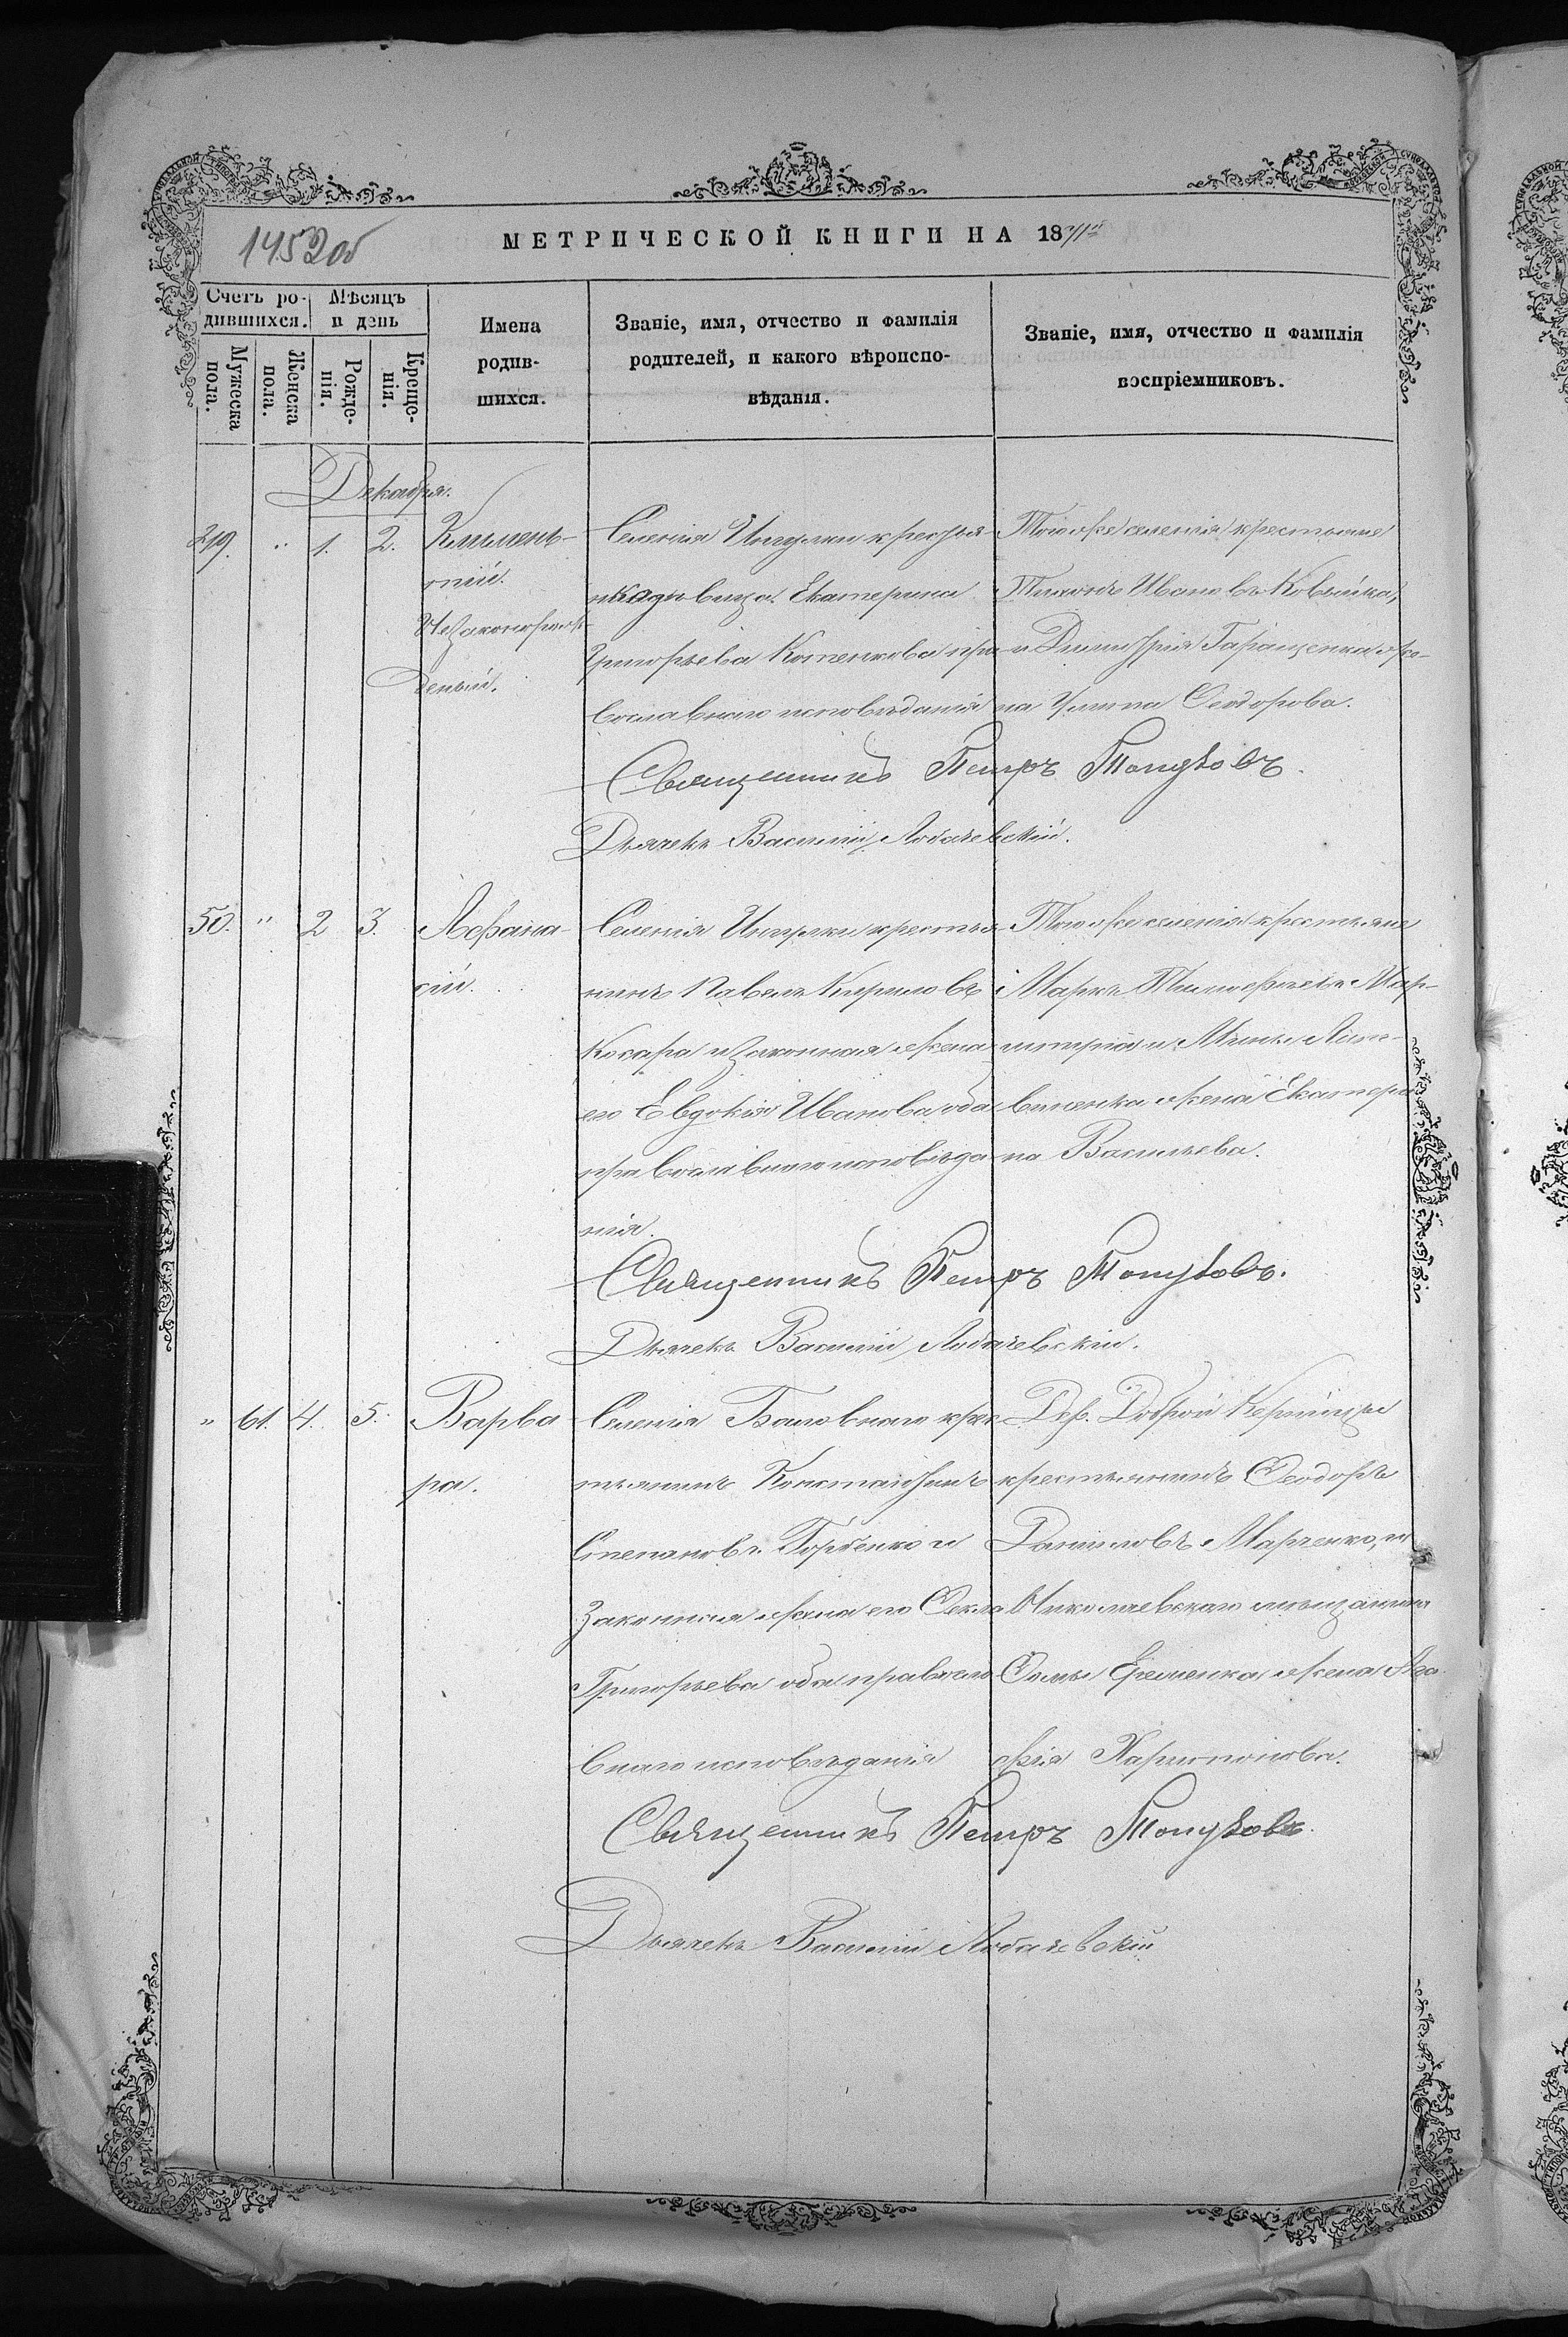 1452об
МЕТРИЧЕСКОЙ КНИГИ НА 18
Счетъ ро-
дившихся.
Мужеска пола.
Женска пола.
Мѣсяцъ
и день
Рожде-
нія.
Креще-
нія.
Имена
родив-
шихся.
Званіе, имя, отчество и фамилія
родителей, и какого вѣроиспо-
вѣданія.
Званіе, имя, отчество и фамилія
воспріемниковъ.
Декабря.
49. " 1. 2.
Климен-
тій.
Незаконорож-
денный.
Селенія Ингулки крестья
вица Екатерина
Григорьева Котенкова пра
вославнаго исповѣданія
Того же селенія крестьяне
Тихонъ Ивановъ
и Димитрія Гаращенка же-
на Улита Ѳеодорова.
Священникъ Петръ
Дьячекъ Василій Лобачевскій.
50. " 2 3.
Аѳана-
сій.
Селенія Ингулки крестья
нинъ Павелъ Кириловъ
Кохара и законная жена
его Евдокія Иванова оба
православнаго исповѣда
нія.
Того же селенія крестьяне
Маркъ Тимоѳеевъ Мар-
и
виненка жена Екатери
на Васильева.
Священникъ Петръ
Дьячекъ Василій Лобачевскій.
" 61. 4. 5.
Варва
ра.
Селенія Баловнаго крес
тьянинъ Константинъ
Степановъ Горбенко и
законная жена его Ѳекла
Григорьева оба правосла
внаго исповѣданія
Дер. Доброй Керницы
крестьянинъ Ѳеодоръ
Даниловъ Марченко, и
Николаевскаго мѣщанина
Ѳомы Еременка жена Ага
фія Харитонова.
Священникъ Петръ
Дьячекъ Василій Лобачевскій